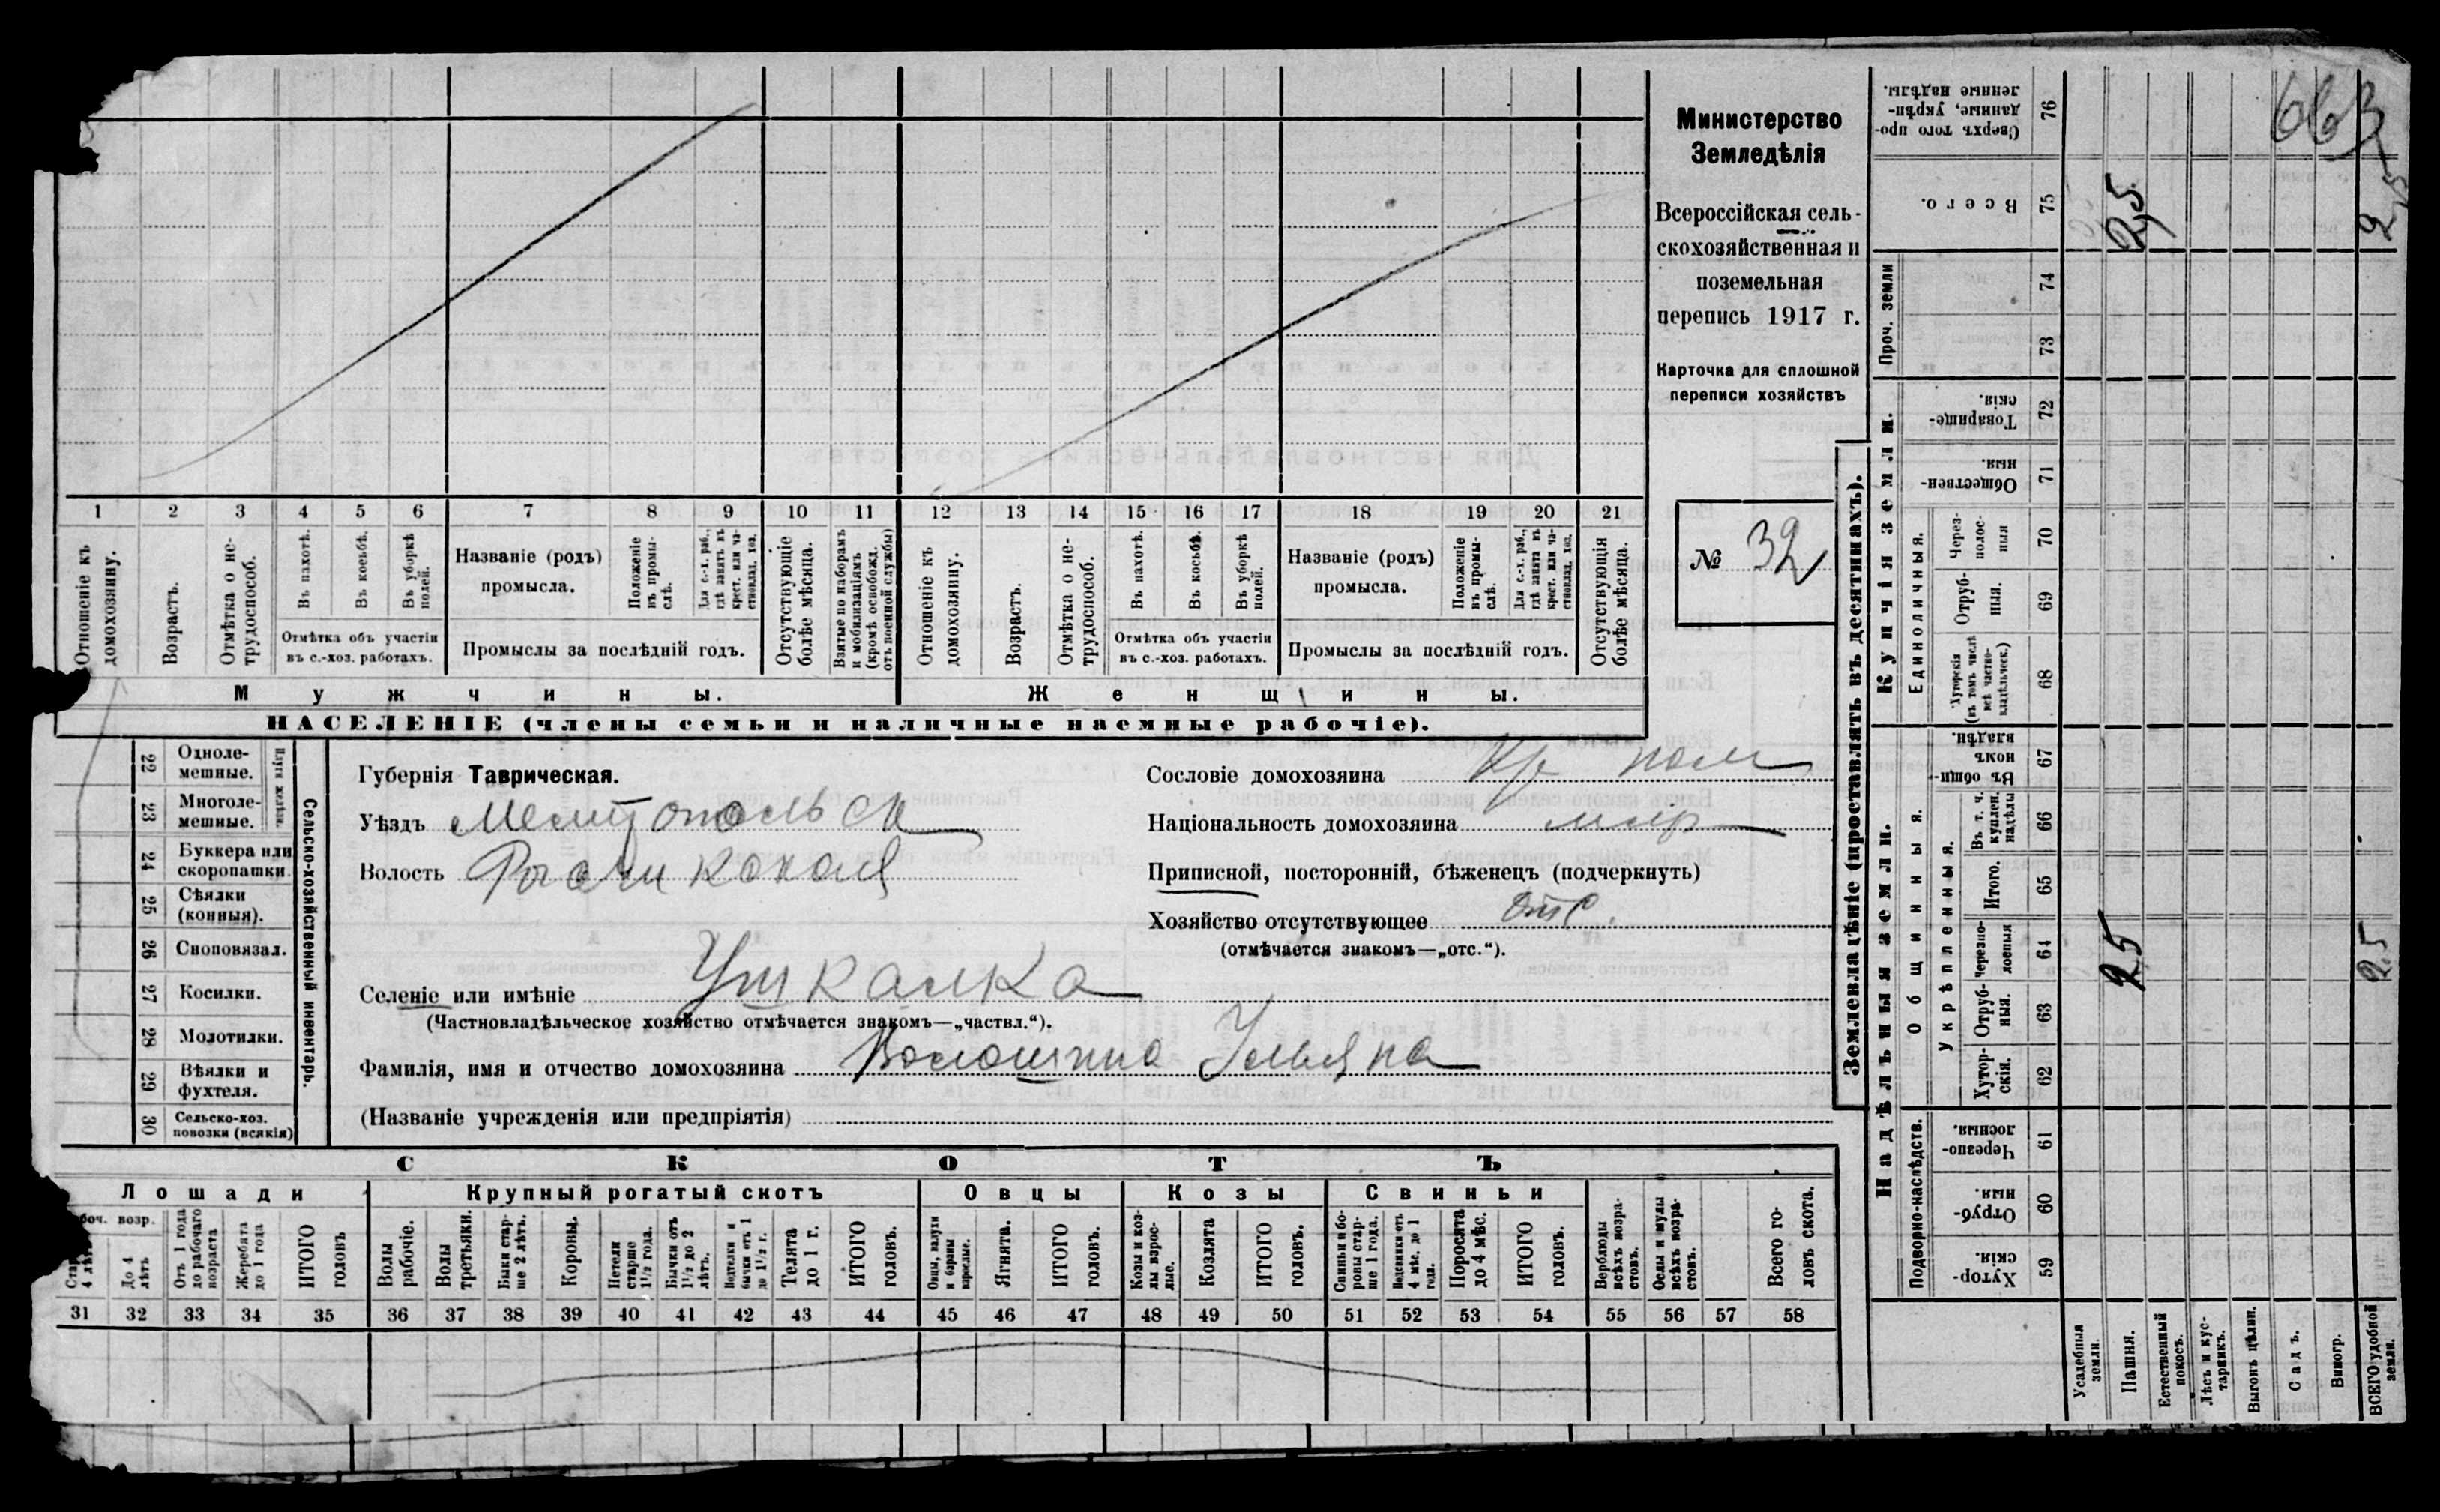 Министерство
Земледѣлія
Всероссійская сель-
скохозяйственная и
поземельная
перепись 1917 г.
Карточка для сплошной
переписи хозяйствъ
№ 32
1 2 3 4 5 6 7 8 9 10 11 12 13 14 15 16 17 18 19 20 21
Отношеніе къ домохозяину.
Возрастъ.
Отмѣтка о не-трудоспособ.
Въ пахотѣ.
Въ косьбѣ.
Въ уборкѣ полей.
Отмѣтка объ участіи
въ с.-хоз. работахъ.
Названіе (родъ)
промысла.
Положеніе въ промы-слѣ.
Для с.-х. раб., гдѣ занятъ въ крест. или ча-стновлад. хоз.
Промыслы за послѣдній годъ.
Отсутствующіе болѣе мѣсяца.
Взятые по наборамъ и мобилизаціямъ (кромѣ освобожд. отъ военной службы)
Отношеніе къ домохозяину.
Возрастъ.
Отмѣтка о не-трудоспособ.
Въ пахотѣ.
Въ косьбѣ.
Въ уборкѣ полей.
Отмѣтка объ участіи
въ с.-хоз. работахъ.
Названіе (родъ)
промысла.
Положеніе въ промы-слѣ.
Для с.-х. раб., гдѣ занятъ въ крест. или ча-стновлад. хоз.
Промыслы за послѣдній годъ.
Отсутствующія болѣе мѣсяца.
Мужчины.
Женщины.
НАСЕЛЕНІЕ (члены семьи и наличные наемные рабочіе).
22 Одноле-мешные.
23 Многоле-мешные.
24 Буккера или скоропашки.
25 Сѣялки (конныя).
26 Сноповязал.
27 Косилки.
28 Молотилки.
29 Вѣялки и фухтеля.
30 Сельско-хоз. повозки (всякія)
Сельско-хозяйственный инвентарь.
Губернія Таврическая.
Уѣздъ Мелитопольск
Волость
Селеніе или имѣніе Ушкалка
(Частновладѣльческое хозяйство отмѣчается знакомъ—„частвл.“).
Фамилія, имя и отчество домохозяина Волошина Ульяна
(Названіе учрежденія или предпріятія)
Сословіе домохозяина
Національность домохозяина
Приписной, посторонній, бѣженецъ (подчеркнуть)
Хозяйство отсутствующее отс.
(отмѣчается знакомъ—„отс.“).
СКОТЪ
Лошади
Крупный рогатый скотъ
Овцы
Козы
Свиньи
До 4 лѣтъ
Отъ 1 года до рабочаго возраста
Жеребята до 1 года
ИТОГО головъ
Волы рабочіе.
Волы третьяки.
Быки стар-ше 2 лѣтъ.
Коровы.
Нетели старше 1½ года.
Бычки отъ 1½ до 2 лѣтъ.
Телки и бычки отъ 1 до 1½ г.
Телята до 1 г.
ИТОГО головъ.
Овцы, валухи и бараны взрослые.
Ягнята.
ИТОГО головъ.
Козы и коз-лы взрос-лые.
Козлята
ИТОГО головъ.
Свиньи и бо-ровы стар-ше 1 года.
Подсвинки отъ 4 мѣс. до 1 года.
Поросята до 4 мѣс.
ИТОГО головъ.
Верблюды всѣхъ возра-стовъ.
Ослы и мулы всѣхъ возра-стовъ.
Всего го-ловъ скота.
31 32 33 34 35 36 37 38 39 40 41 42 43 44 45 46 47 48 49 50 51 52 53 54 55 56 57 58
Землевладѣніе (проставлять въ десятинахъ).
Надѣльныя земли.
Купчія земли.
Проч. земли
Подворно-наслѣдств.
Общинныя.
Укрѣпленныя.
Единоличныя.
Сверхъ того про-данные, укрѣп-ленные надѣлы. 76
Всего. 75 2,5
74
73
Товарище-скія. 72
Обществен-ныя. 71
Через-полос-ныя 70
Отруб-ныя. 69
Хуторскія (въ томъ числѣ всѣ частно-владѣльческ.) 68
Въ общи-номъ владѣн. 67
Въ т. ч. куплен. надѣлы 66
Итого. 65
Черезпо-лосныя 64 25 25
Отруб-ныя. 63
Хутор-скія. 62
Черезпо-лосныя. 61
Отруб-ныя. 60
Хутор-скія. 59
Усадебныя земли.
Пашня.
Естественный покосъ.
Лѣсъ и кус-тарникъ.
Выгонъ цѣлин.
Садъ.
Виногр.
ВСЕГО удобной земли.